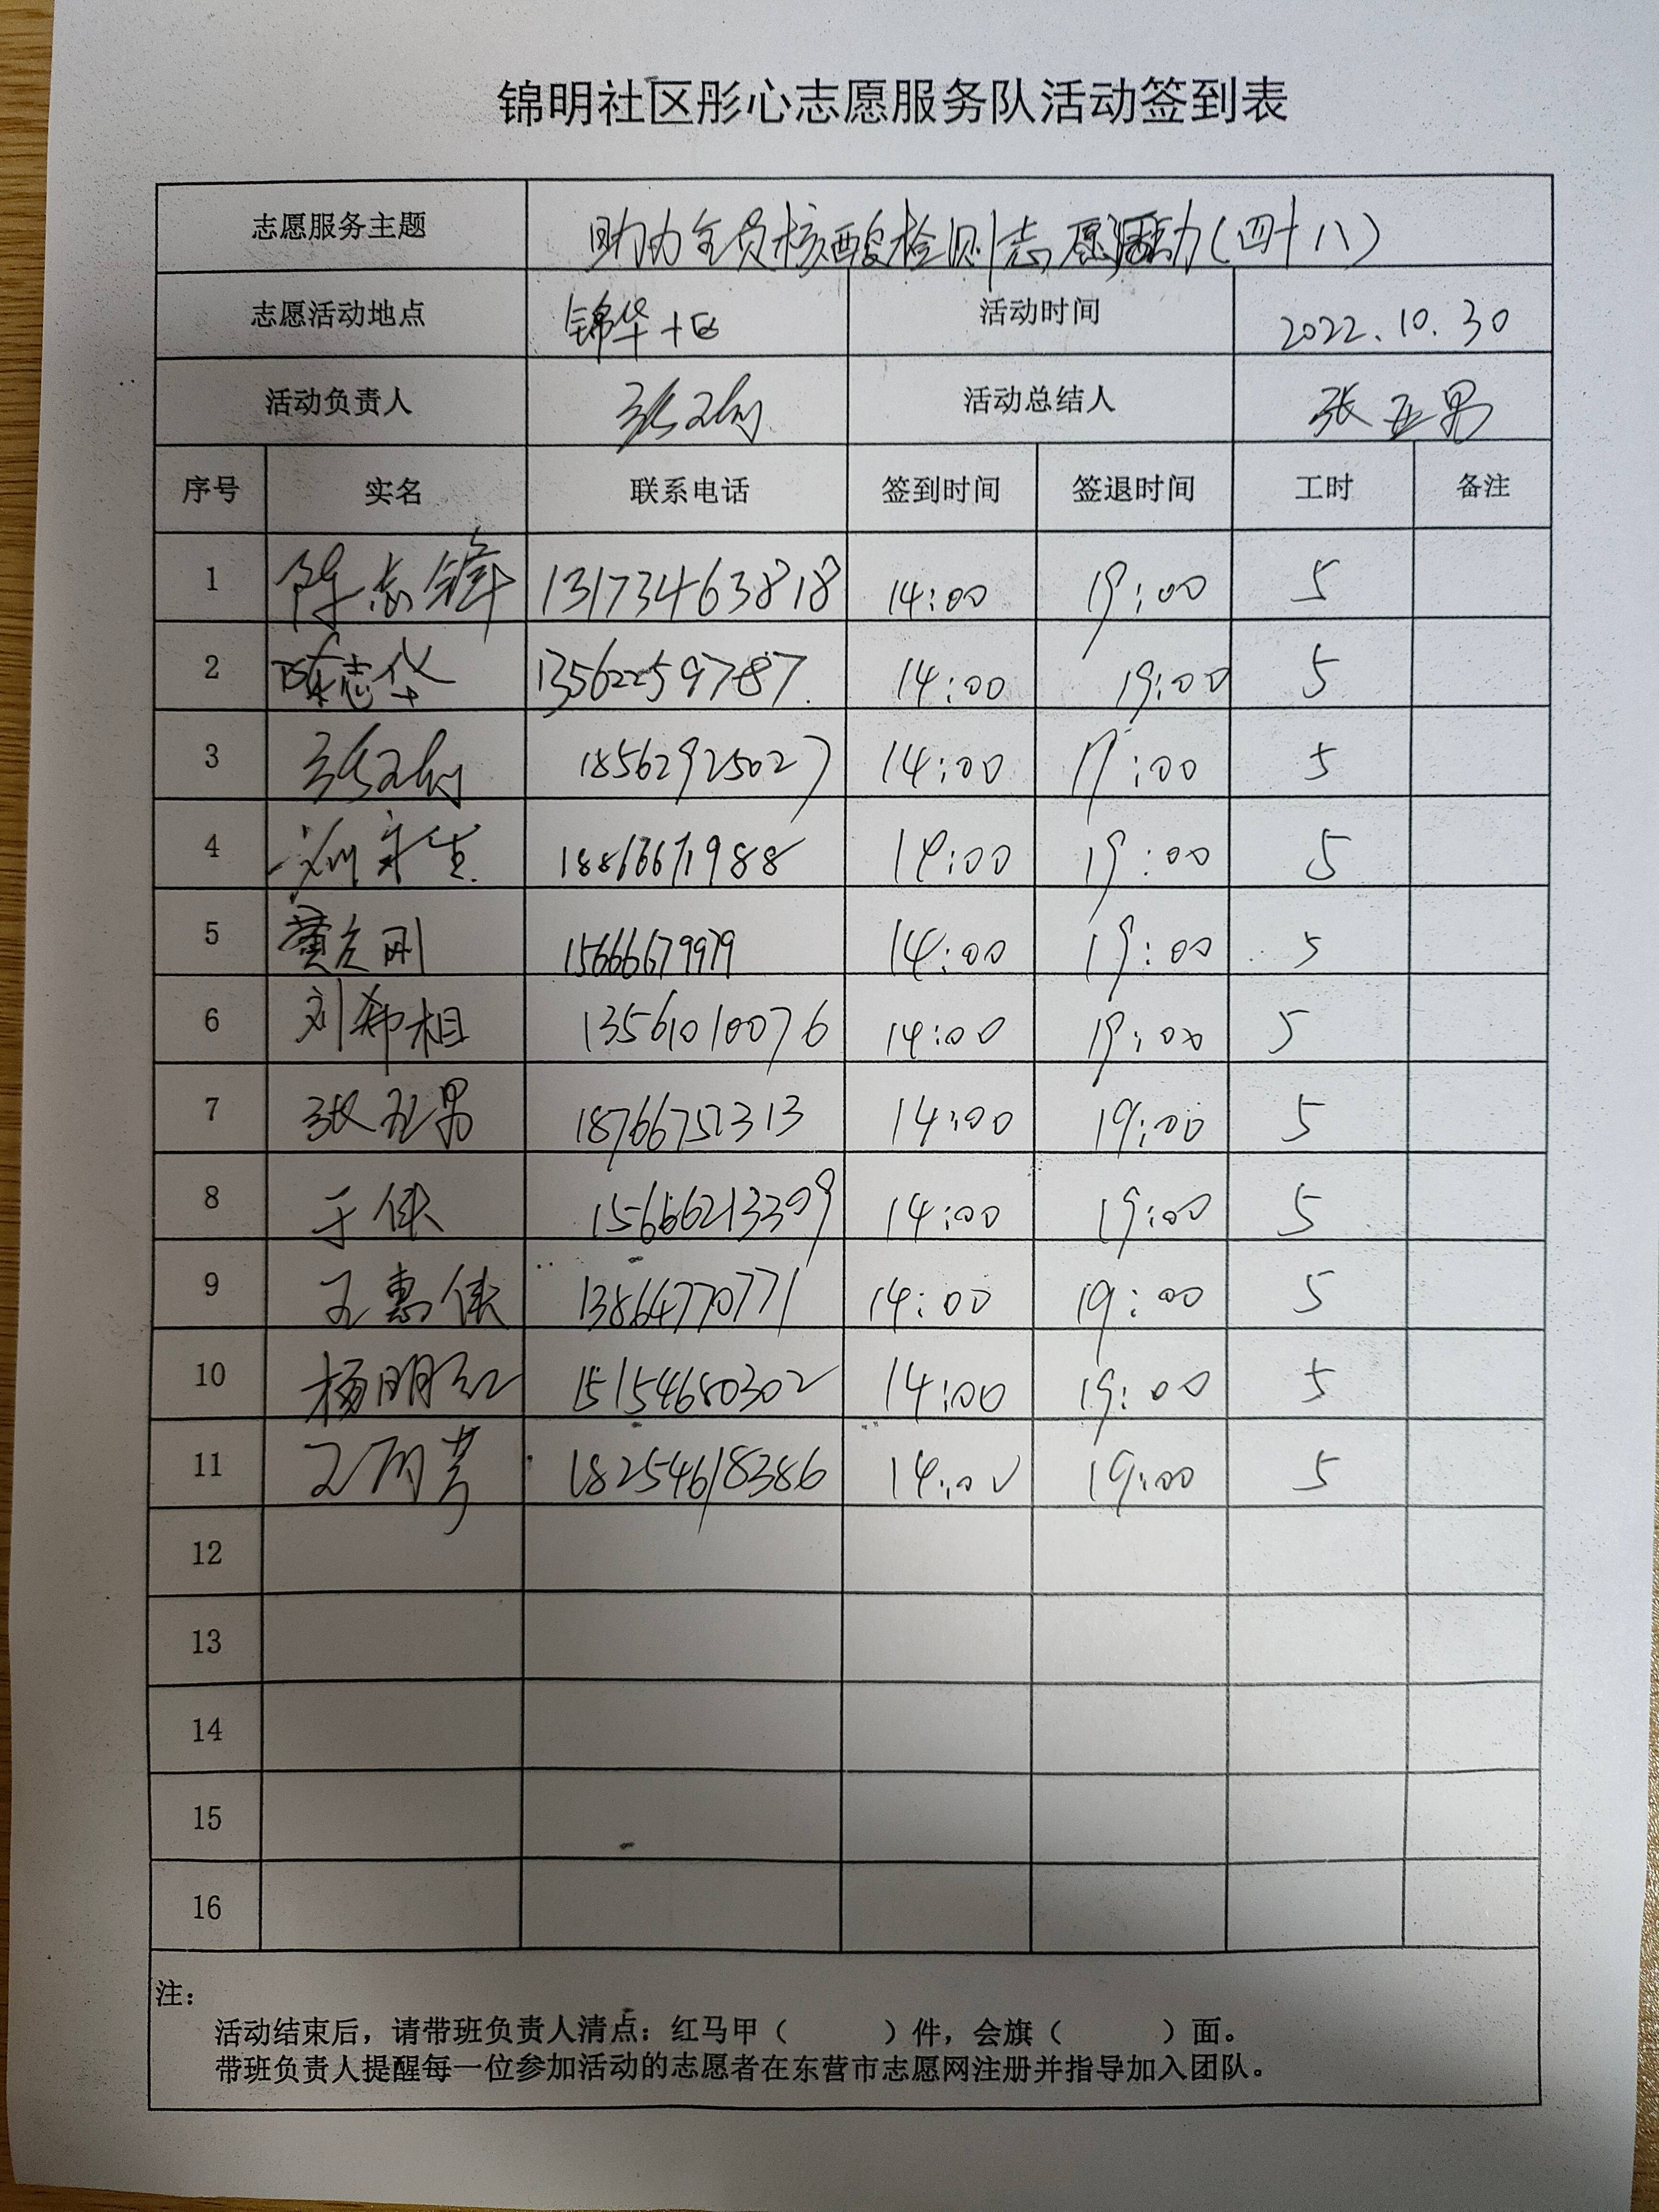 锦明社区彤心志愿服务队活动签到表
志愿服务主题 助力全员核酸检测志愿活动(四十八)
志愿活动地点 锦华十区 活动时间 2022.10.30
活动负责人 活动总结人 张亚男
序号 实名 联系电话 签到时间 签退时间 工时 备注
1 陈志锋 13173463818 14:00 19:00 5
2 陈志华 13562259787 14:00 19:00 5
3 18562925027 14:00 19:00 5
4 18866671988 14:00 19:00 5
5 黄立刚 15666679979 14:00 19:00 5
6 刘希相 13561010076 14:00 19:00 5
7 张亚男 18766757313 14:00 19:00 5
8 于俠 15666213309 14:00 19:00 5
9 王惠俠 13864770771 14:00 19:00 5
10 杨明红 15154680302 14:00 19:00 5
11 18254618386 14:00 19:00 5
12
13
14
15
16
注:
活动结束后,请带班负责人清点:红马甲( )件,会旗( )面。
带班负责人提醒每一位参加活动的志愿者在东营市志愿网注册并指导加入团队。